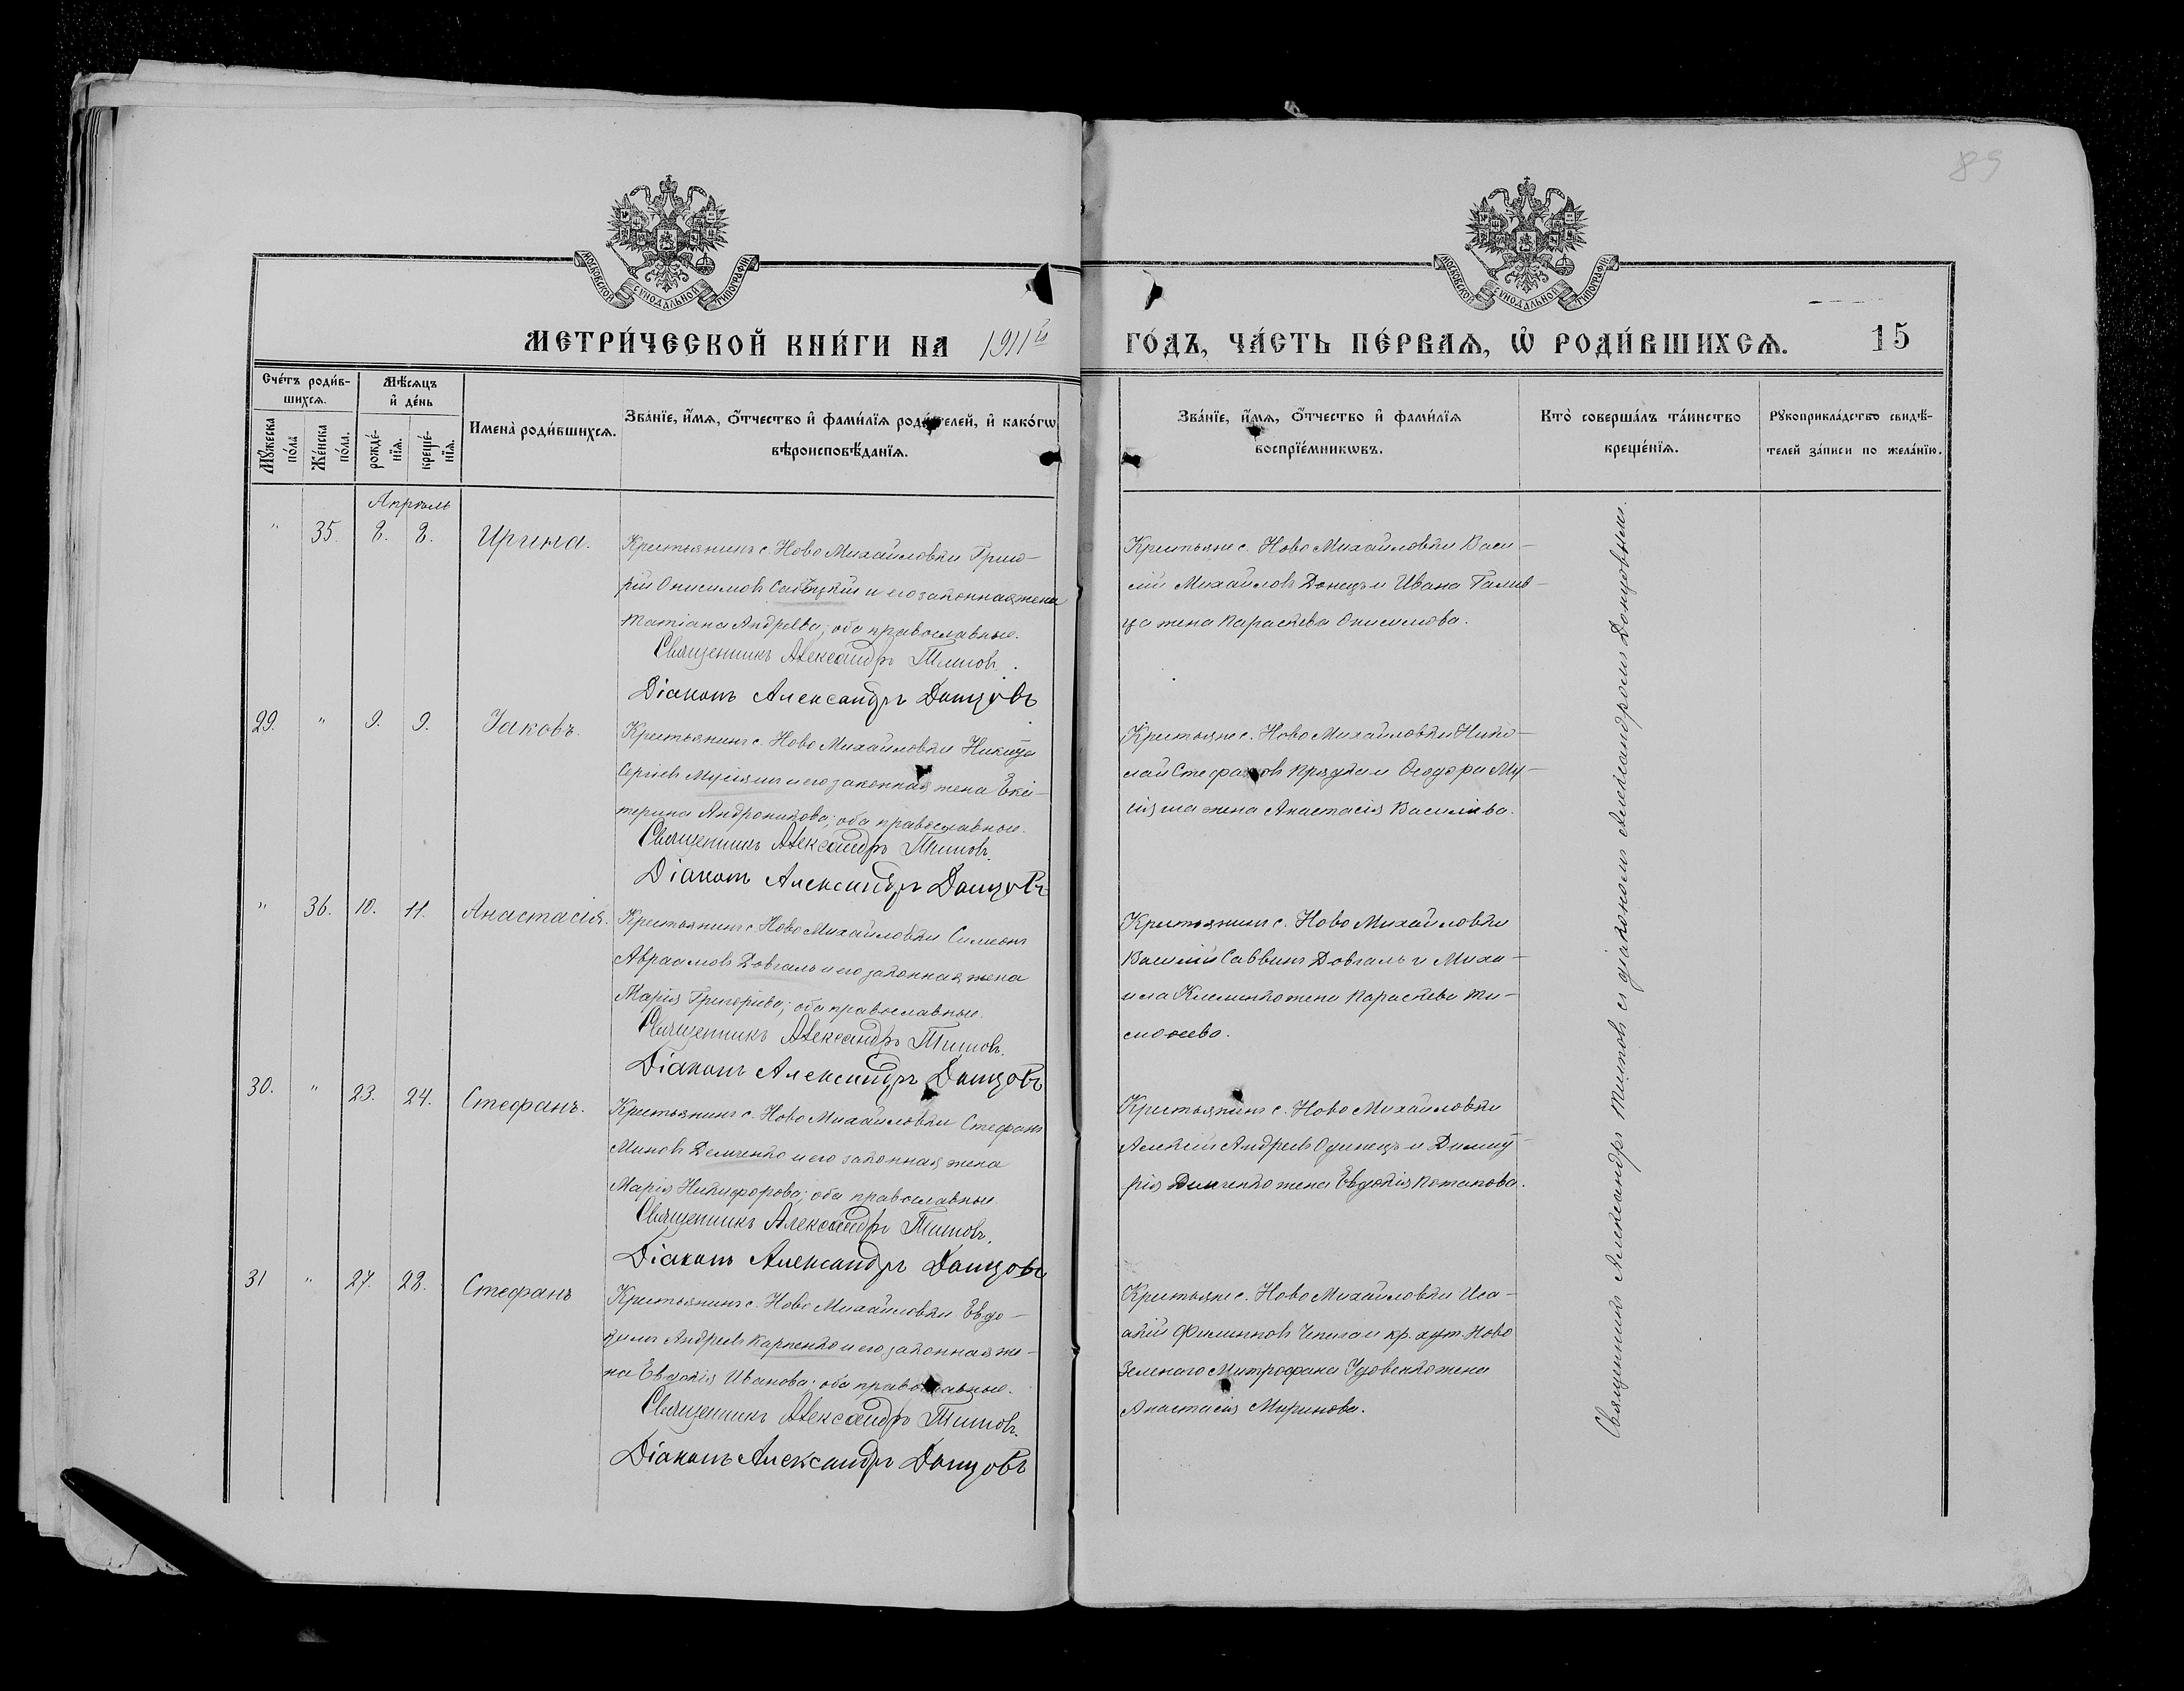 89
МОСКОВСКОЙ СУНОДАЛЬНОЙ ТИПОГРАФІИ
МОСКОВСКОЙ СУНОДАЛЬНОЙ ТИПОГРАФІИ
МЕТРИ́ЧЕСКОЙ КНИ́ГИ НА 1911й ГО́ДЪ, ЧА́СТЬ ПЕ́РВАѦ, Ѡ҆ РОДИ́ВШИХСѦ. 15
Сче́тъ роди́в-
шихсѧ.
Мѣ́сѧцъ
и҆ де́нь
Мꙋ́жеска
по́ла
Же́нска
по́ла.
рожде́-
нїѧ.
креще́-
нїѧ.
Имена̀ роди́вшихсѧ.
Зва́нїе, и҆́мѧ, ѻ҆́тчество и҆ фами́лїѧ роди́телей, и҆ како́гѡ
вѣроисповѣ́данїѧ.
Зва́нїе, и҆́мѧ, ѻ҆́тчество и҆ фами́лїѧ
воспрїе́мникѡвъ.
Кто̀ соверша́лъ та́инство
креще́нїѧ.
Рꙋкоприкла́дство свидѣ́-
телей за́писи по жела́нїю.
Апрѣль
" 35. 8. 8. Ирина.
Крестьянинъ с. Ново Михайловки Григо-
рій Онисимовъ и его законная жена
Татіана Андреева; оба православные.
Священникъ Александръ Титовъ.
Діаконъ Александръ Донцовъ
Крестьяне с. Ново Михайловки Васи-
лій Михайловъ Донецъ и Ивана Галив-
ца жена Параскева Онисимова.
29. " 9. 9. Іаковъ.
Крестьянинъ с. Ново Михайловки Никита
Сергіевъ Мусіяшъ и его законная жена Ека-
терина Андроникова; оба православные.
Священникъ Александръ Титовъ.
Діаконъ Александръ Донцовъ
Крестьяне с. Ново Михайловки Нико-
лай Стефановъ и Ѳеодора Му-
сіяша жена Анастасія Васильева.
" 36. 10. 11. Анастасія.
Крестьянинъ с. Ново Михайловки Симеонъ
Авраамовъ Довгаль и его законная жена
Марія Григоріева; оба православные.
Священникъ Александръ Титовъ.
Діаконъ Александръ Донцовъ
Крестьянинъ с. Ново Михайловки
Василій Саввинъ Довгаль и Миха-
ила Клименко жена Параскева Ти-
моѳеева.
30. " 23. 24. Стефанъ.
Крестьянинъ с. Ново Михайловки Стефанъ
Миновъ Демченко и его законная жена
Марія Никифорова; оба православные
Священникъ Александръ Титовъ.
Діаконъ Александръ Донцовъ
Крестьянинъ с. Ново Михайловки
Алексій Андреевъ Одинецъ и Димит-
рія Демченко жена Евдокія Потапова.
31 " 27. 28. Стефанъ
Крестьянинъ с. Ново Михайловки Евдо-
кимъ Андреевъ Карпенко и его законная же-
на Евдокія Иванова; оба православные.
Священникъ Александръ Титовъ.
Діаконъ Александръ Донцовъ
Крестьяне с. Ново Михайловки Иса-
акій Филипповъ Чепига и кр. хут. Ново
Зеленаго Митрофана Удовенко жена
Анастасія Миронова.
Священникъ Александръ Титовъ съ діакономъ Александромъ Донцовымъ.